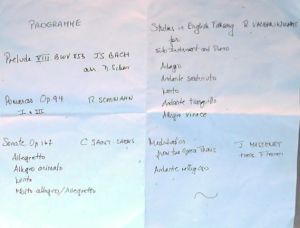 PROGRAMME
Prelude VIII BWV 853 J.S. BACH
arr.
Romances Op. 94 R. SCHUMANN
I & II
Sonate Op. 167 C. SAINT-SAENS
Allegretto
Allegro animato
Lento
Molto allegro/Allegretto
Studies in English Folksong R. VAUGHAN WILLIAMS
for
and Piano
Allegro
Andante sostenuto
Lento
Andante tranquillo
Allegro vivace
Meditation J. MASSENET
from the Opera Thais
Andante religioso